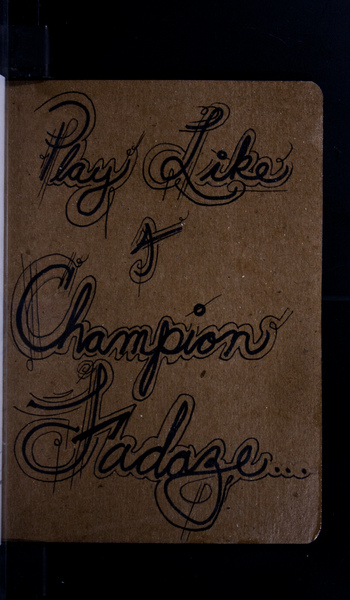 Play Like
A
Champion
Fadaze...